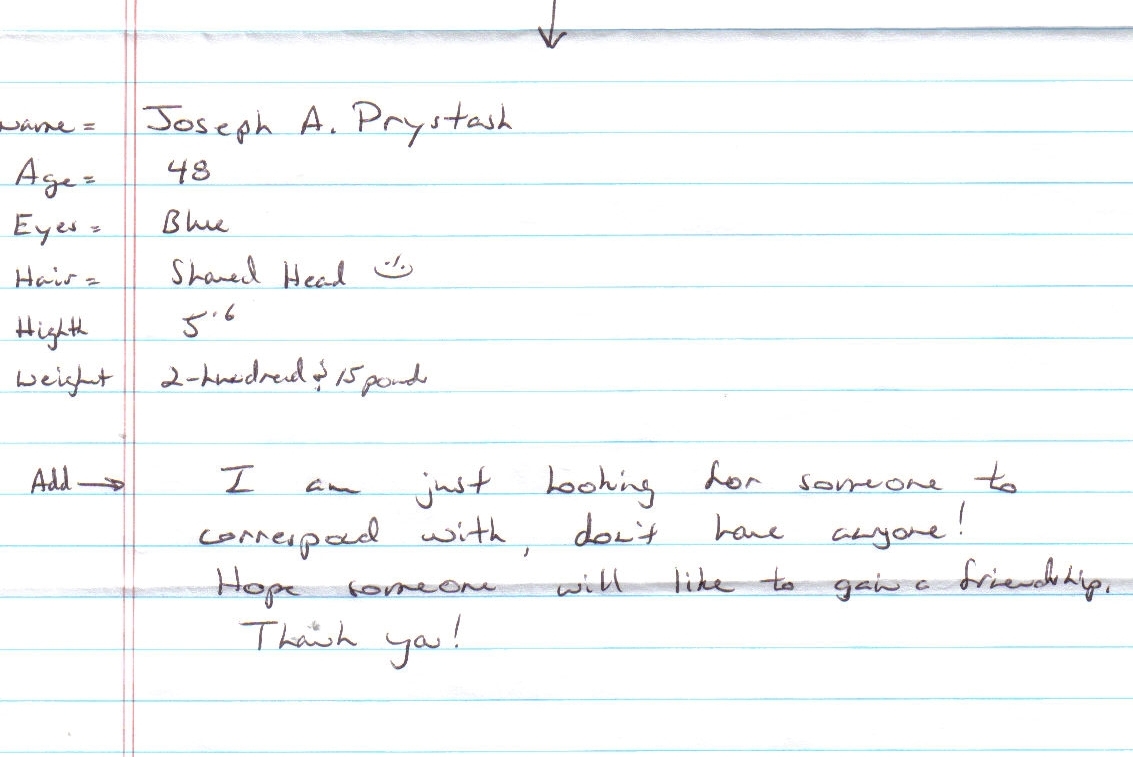 Name = Joseph A. Prystash
Age = 48
Eyes = Blue
Hair = Shaved Head
Highth 5'6
Weight 2-hundred & 15 pounds
Add → I am just looking for someone to
correspond with, don't have anyone!
Hope someone will like to gain a friendship.
Thank you!